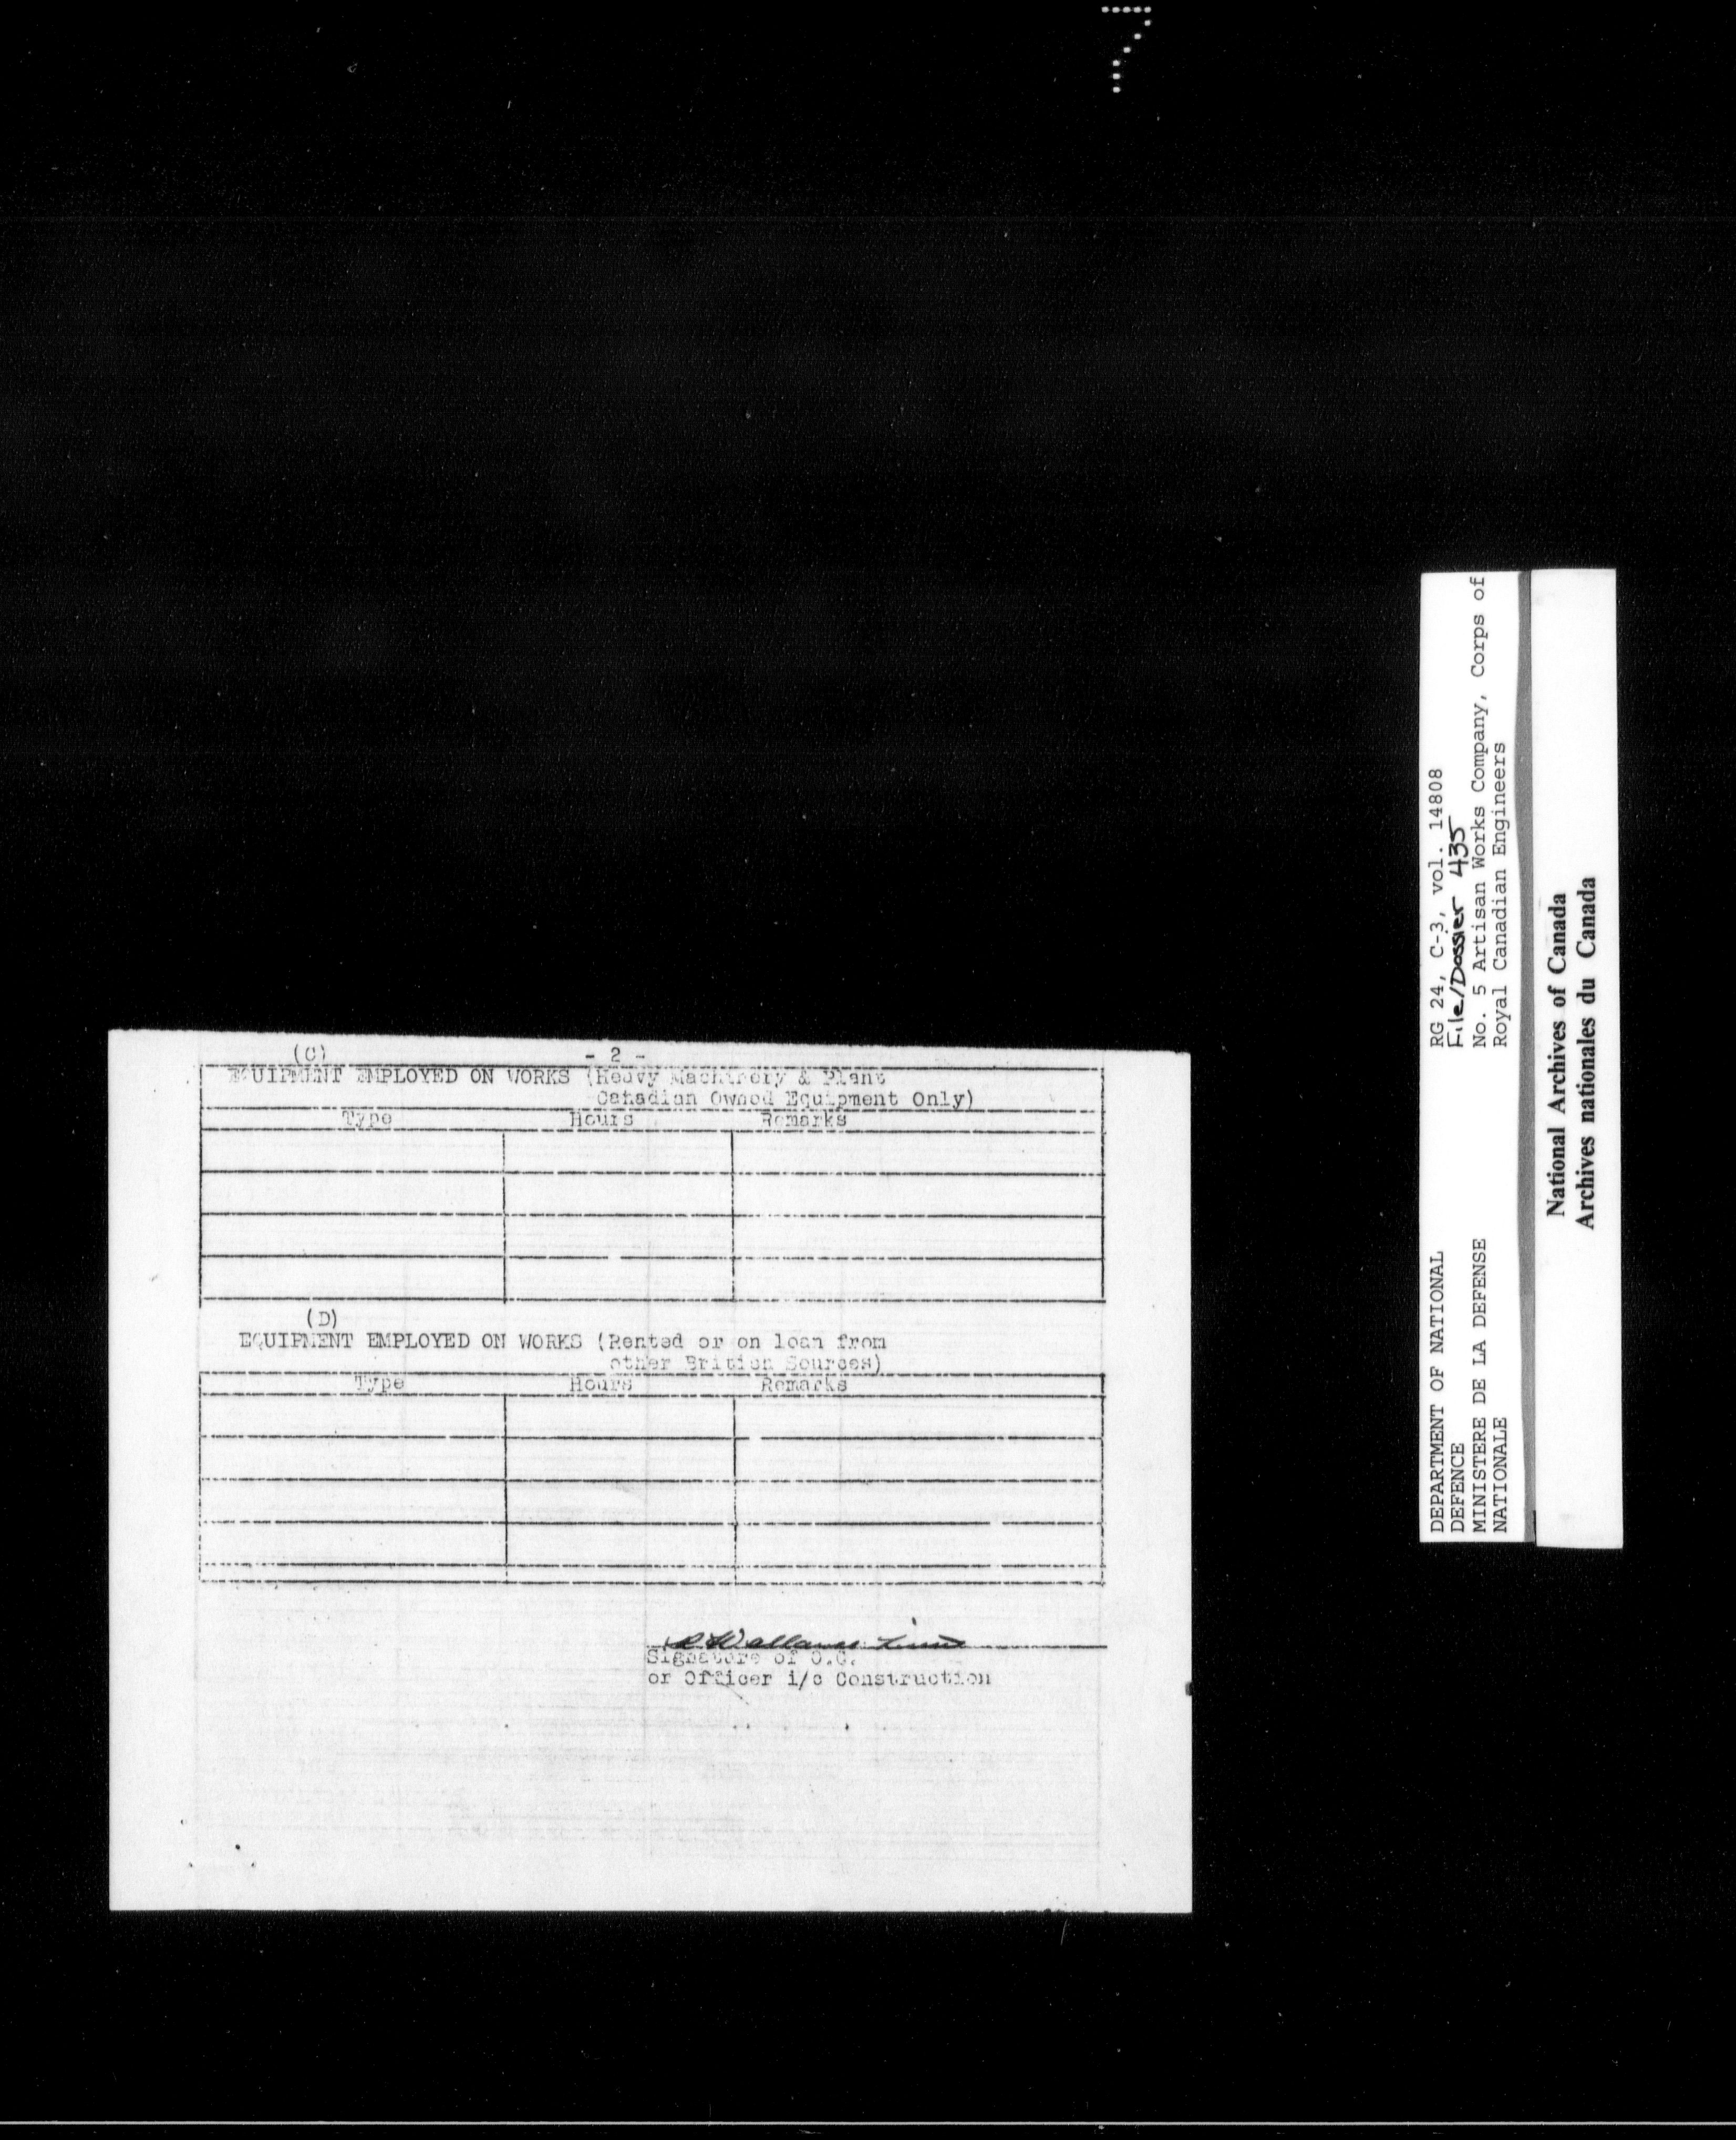 7
(C) - 2 -
EQUIPMENT EMPLOYED ON WORKS (Heavy Machinery & Plant
Canadian Owned Equipment Only)
Type Hours Remarks
(D)
EQUIPMENT EMPLOYED ON WORKS (Rented or on loan from
other British Sources)
Type Hours Remarks
Signature of O.C.
or Officer i/c Construction
DEPARTMENT OF NATIONAL
DEFENCE
MINISTERE DE LA DEFENSE
NATIONALE
RG 24, C-3, vol. 14808
File/Dossier 435
No. 5 Artisan Works Company, Corps of
Royal Canadian Engineers
National Archives of Canada
Archives nationales du Canada